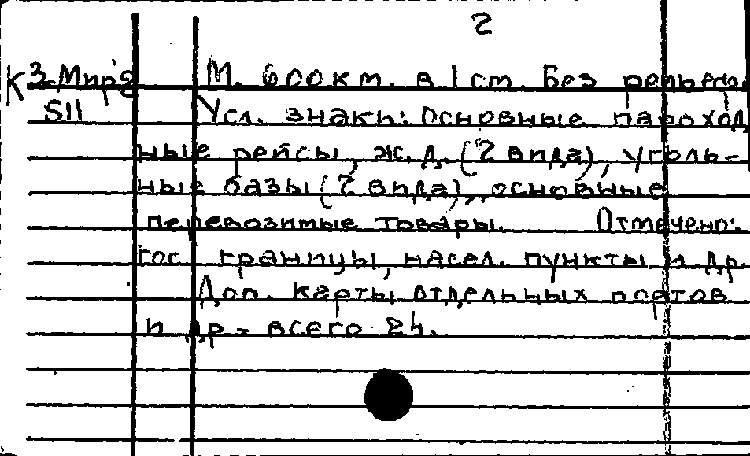 2
К 3-Мир§ М. 600км. в 1 см. Без рельефа.
511 Усл. знаки: Основные пароход
ные рейсы, ж.д. (2 вида), уголь-
ные базы (2 вида), основные
перевозимые товары. Отмечено:
гос границы, насел. пункты и др.
Доп. карты отдельных портов
и др - всего 24.